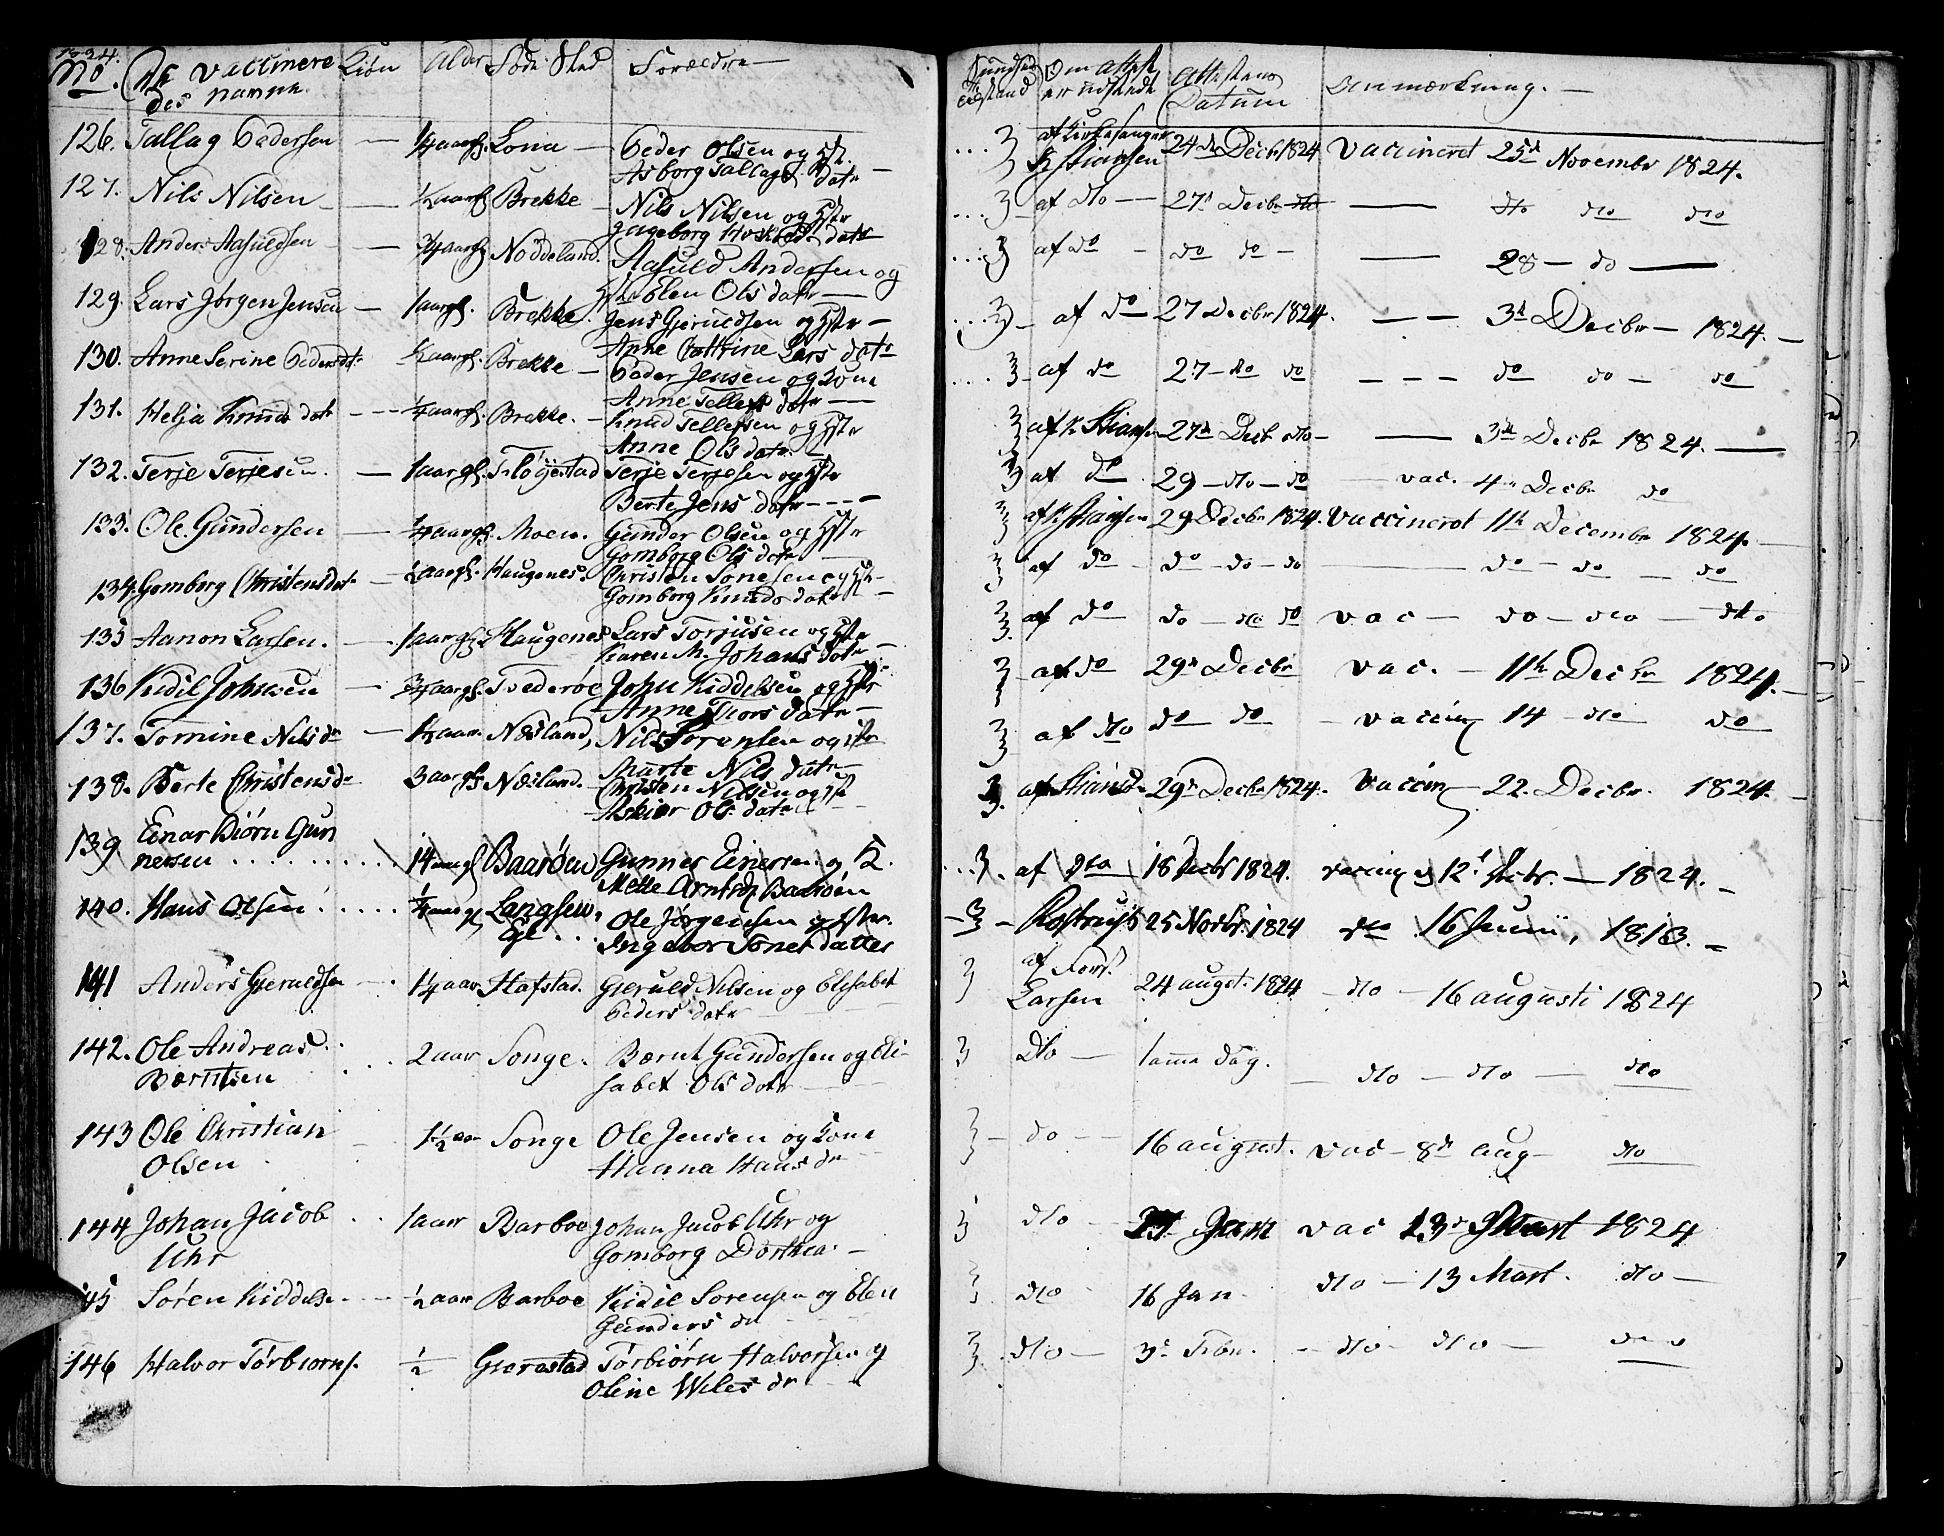 1824.
No. De vaccinere Kiön Alder Föde Sted Forældre
des navne.
126. Tallag Pedersen — 1/4 aargl. Lona — Peder Olsen og Hstr.
Asborg Tallags datr
127. Nils Nilsen — 1/2 aargl Brekke — Nils Nilsen og Hstr
Ingeborg datr
128. Anders Aasuldsen — 3/4 aargl Noddeland. Aasuld Andersen og
Hstr Elen Ols datr
129. Lars Jørgen Jensen — 1 aargl. Brekke. Jens Gjeruldsen og Hstr —
Anne Cathrine Lars datr
130. Anne Serine Pedersdtr aargl. Brekke — Peder Jensen og Kone
Anne Tellefs datr
131. Helja Knuds datr - - - 1/4 aargl. Brekke. — Knud Tellefsen og Hstr
Anne Ols datr
132. Terje Terjesen — 1 aargl. Fløgestad Terje Terjesen og Hstr
Berte Jens datr - - -
133. Ole Gundersen — aargl. Moen. Gunder Olsen og Hstr
Gomborg Ols datr
134. Gomborg Christensdatr — 1/2 aargl. Haugenes. Christen Tonesen og Hstr
Gomborg Knuds datr —
135 Aanon Larsen. — 1 aargl. Haugenes Lars Torjusen og Hstr
Karen M. Johans datr
136 Kidil Johnsen — 3/4 aargl. Tvederøe John Kiddelsen og Hstr
Anne Tiors datr —
137. Tomine Nilsdr — 1/2 aar. Næsland, Nils Sørensen og Hstr
Marte Nils datr —
138. Berte Christensdr 3 aargl Næsland. — Christen Nilsen og Hst
Askier Ols datr —
139 Einar Biørn Gun
nersen . . . . . . . . . 14 aargl Baarøen Gunner Einersen og H.
Mette Arntsdr Baarøen
140. Hans Olsen . . . . . 1/4 aargl Langsew, Ole Jørgensen og Hstr.
Ejl . . Ingebor Tones datter
141 Anders Gjeruldsen — 1 1/4 aar Hafstad. Gieruld Nilsen og Elisabet
Peders datr
142. Ole Andreas . . . . 2 aar Songe. Bærnt Gundersen og Eli-
Bærntsen sabet Ols datr
143 Ole Christian — 1 1/2 aar Songe Ole Jensen og Kone
Olsen Hanna Hans dr
144 Johan Jacob . . 1 aar Barboe Johan Jacob Uhr og
Uhr Gomborg Dorthea —
145 Søren Kiddels. - - - 1/2 aar Barboe Kidil Sorensen og Elen
Gunders dr
146 Halvor Tørbiorns. 1/2 Gierestad Tørbiørn Halvorsen og
Oline Weles dr
Om attest Attestens Anmærkning. —
er udstædt Datum
3 af Kirkesanger 24de Decbr 1824 Vaccineret 25de Novembr 1824.
Kstiansen
3 af dto — 27de Decbr dto — dto dto dto
3 af do — do do — — 28 — do —
3 — af do 27 Decbr 1824. — — 3de Decbr — 1824. —
3 — af do 27 — do do — — — do do — do
3 af Kstiansen 27de Decb dto — — 3de Decbr 1824. —
3 af do 29 — dto — do — vac. 4de Decbr do
3 af Kstiansen 29 Decbr 1824. Vaccineret 11te Decembr 1824. —
3 af do do — do — do — do — do — do
3 af do do — do do vac — do — dto — dto
3 af do 29de Decbr vac. — 11te Decbr 1824. —
3 af dto do do — vaccin 14 — dto do
3. af Kstians. 29de Decbr 1824. Vaccin 22. Decbr. 1824. —
3. af dto 18 Decbr 1824. vaccin d 12te Decbr. — 1824. —
3 — Rostrup 25 Novbr. 1824 dto 16 Junii, 1818. —
3 af Fors.
Larsen 24 august. 1824 — dto — 16 augusti 1824
3 Dto — samme dag. — dto — dto — dto
3 — do — 16 august. vac — 8de aug — dto
3 dto — Jan vac 13de Mart 1824
3 dto 16 Jan dto — 13 Mart. dto —
3 dto — 3de Febr. — dto — dto — dto